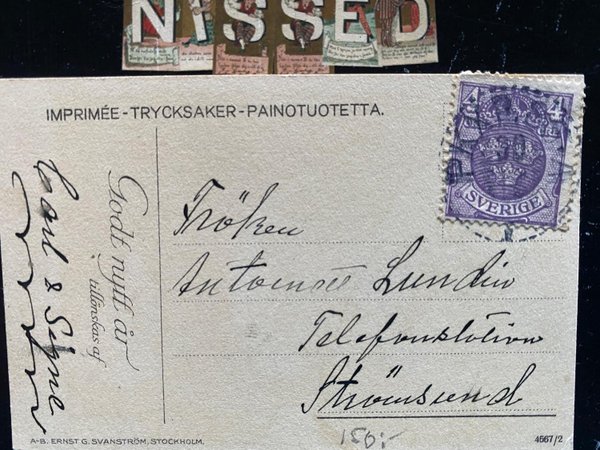 NISSED
IMPRIMÉE-TRYCKSAKER-PAINOTUOTETTA.
4 4
ÖRE
SVERIGE
Godt nytt år
tillönskas af
Carl & Signe
Fröken
Antoinette Lundin
Telefonstation
Strömsund
150:-
A-B. ERNST G. SVANSTRÖM, STOCKHOLM.
4667/2